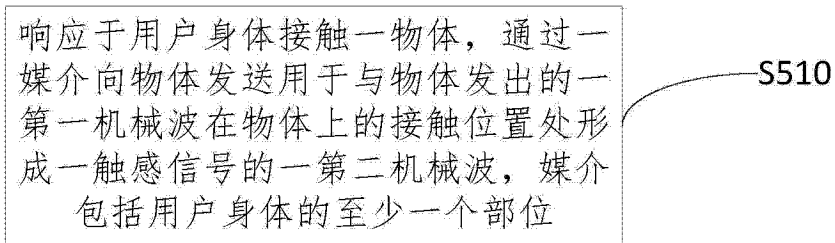 响应于用户身体接触一物体，通过一
媒介向物体发送用于与物体发出的一
第一机械波在物体上的接触位置处形
成一触感信号的一第二机械波，媒介
包括用户身体的至少一个部位
S510